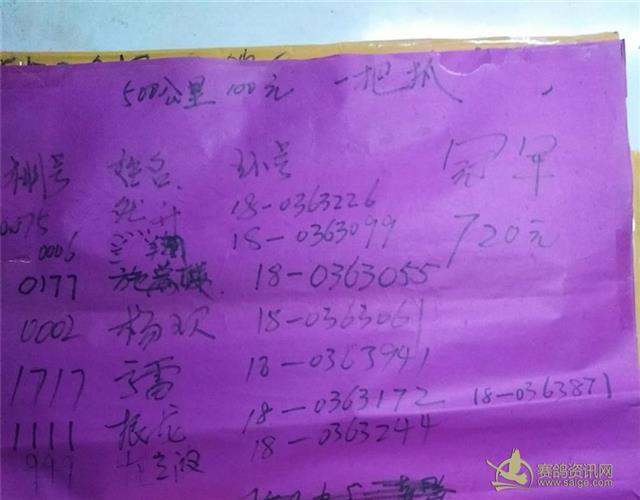 500公里 100元 一把抓
棚号 姓名 环号 冠军
0075 18-0363226
0006 翔 18-0363099 720元
0177 施 18-0363055
0002 杨欢 18-0363061
1717 雷 18-0363941
1111 振龙 18-0363172 18-0363871
999 18-0363244
赛鸽资讯网
www.saige.com